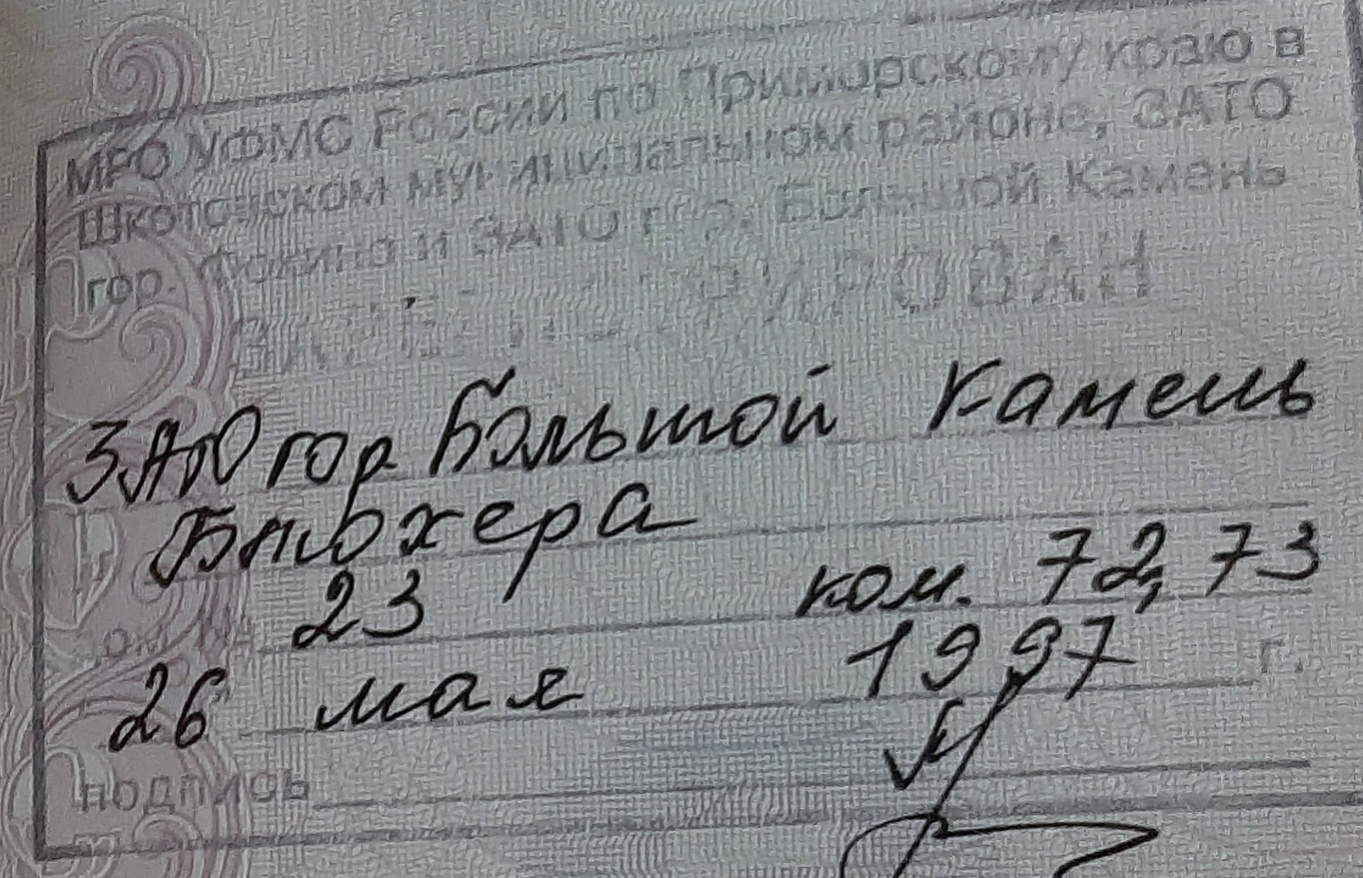 МРО УФМС России по Приморскому краю в
Школтовском муниципальном районе, ЗАТО
гор. Фокино и ЗАТО гор. Большой Камень
ЗАРЕГИСТРИРОВАН
ЗАТО гор Большой Камень
Блюхера
23 ком. 72, 73
26 мая 1997 г.
подпись